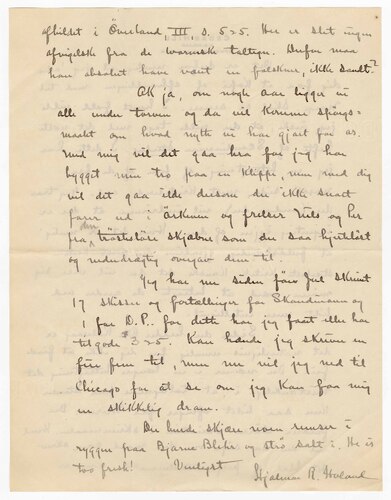 afbildet i Överland, III, s. 525. Her er slet ingen
afvigelse fra de svenske taltegn. Derfor maa
han absolut have været en falskner, ikke sandt?
OK ja, om nogle aar ligger vi
alle under torven og da vil Kommen spörgs-
maalet om hvad nytte vi har gjort for os.
Med mig vil det gaa bra for jeg har
bygget min tro paa en klippe, men med dig
vil det gaa ilde dersom du ikke snart
farer ud i örkenen og frelser Nils og Per
fra den trösteslöse skjæbne som du saa hjertelöst
og nederdrægtig overgav dem til.
Jeg har nu siden före Jul skrevet
17 skisser og fortællinger for Skandinaven og
1 for D.P. for dette har jeg faaet eller har
tilgode $325. Kan hende jeg skriver en
fire fem til, men nu vil jeg ned til
Chicago for at se om jeg kan faa mig
en skikkelig dram.
Du burde skjære noen remser i
ryggen paa Bjarne Blehr og strö salt i. He is
too fresh! Venligst
Hjalmar R. Holand